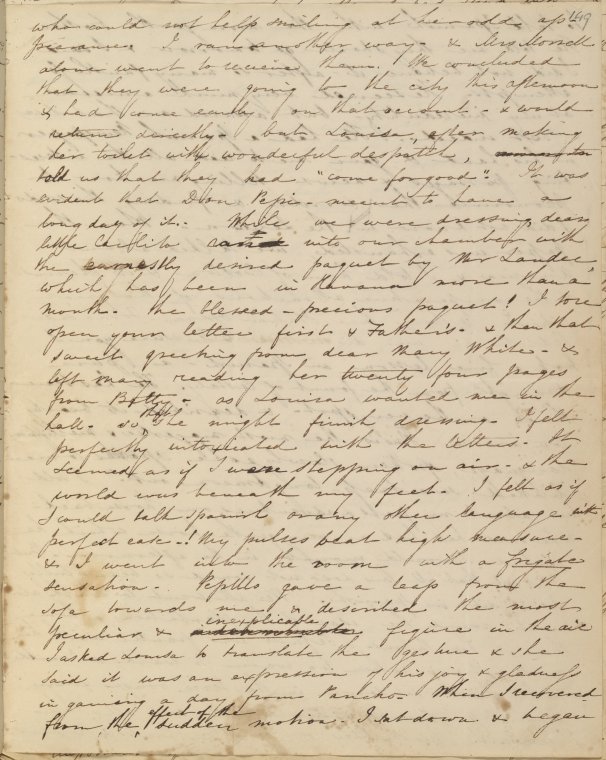 who could not help smiling at her odd ap= 149
pearance. I ran another way - & Mrs Morrell
alone went to receive them. We concluded
that they were going to the city this afternoon
& had come early on that account - & would
return directly - but Louisa, after making
her toilet with wonderful despatch,
told us that they had "come for good". It was
evident that Don Pepe - meant to have a
long day of it. - While we were dressing, dear
little Carlito into our chamber with
the earnestly desired paquet by Mr Lander,
which has been in Havana more than a
month. The blessed - precious paquet! I tore
open your letter first & Father's - & then that
sweet greeting from dear Mary White - &
left Mary reading her twenty four pages
from Betty - as Louisa wanted me in the
hall - so that she might finish dressing. I felt
perfectly intoxicated with the letters. It
seemed as if I were stepping on air - & the
world was beneath my feet. I felt as if
I could talk Spanish or any other language with
perfect ease -! My pulses beat high measure -
& I went into the room with a frigate
sensation. Pepillo gave a leap from the
sofa towards me & described the most
peculiar & inexplicable figure in the air
I asked Louisa to translate the gesture & she
said it was an expression of his joy & gladness
in gaining a day from Pancho. When I recovered
from the effect of the sudden motion - I sat down & began